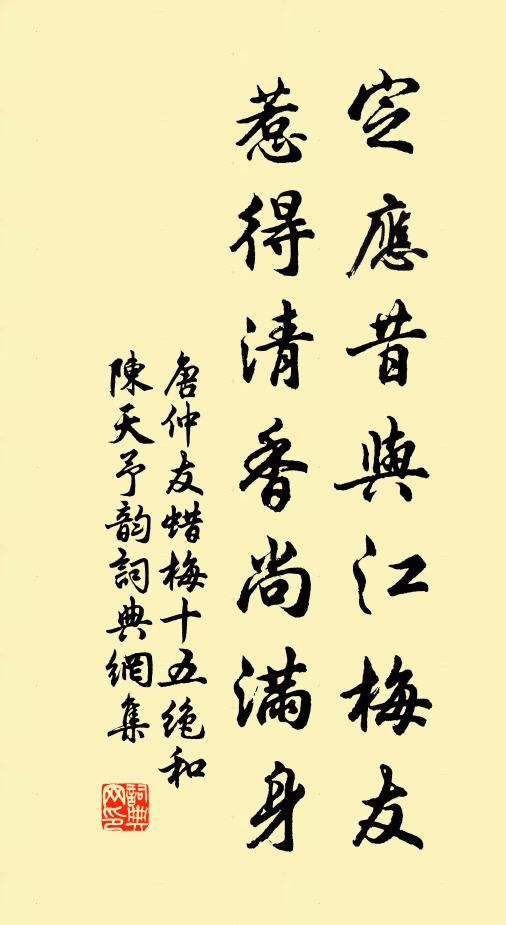 定應昔與江梅友
惹得清香尚滿身
唐仲友蜡梅十五絶和
陳天予韵詞典網集
詞典網印